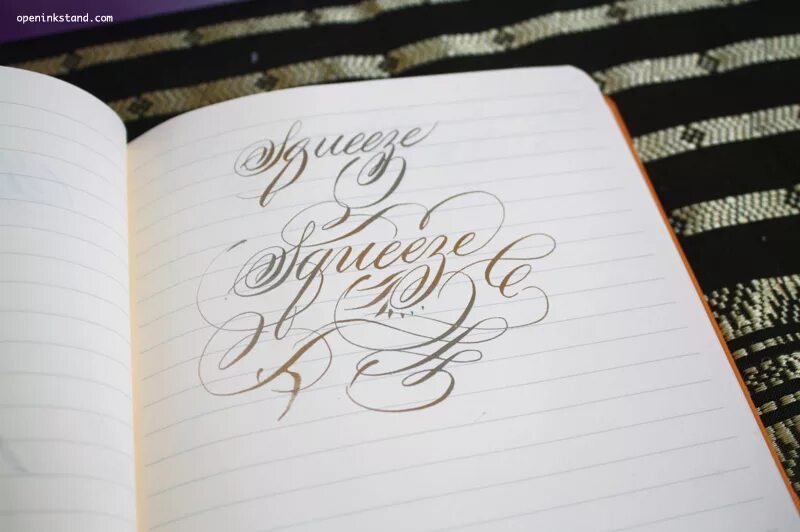 openinkstand.com
Squeeze
Squeeze